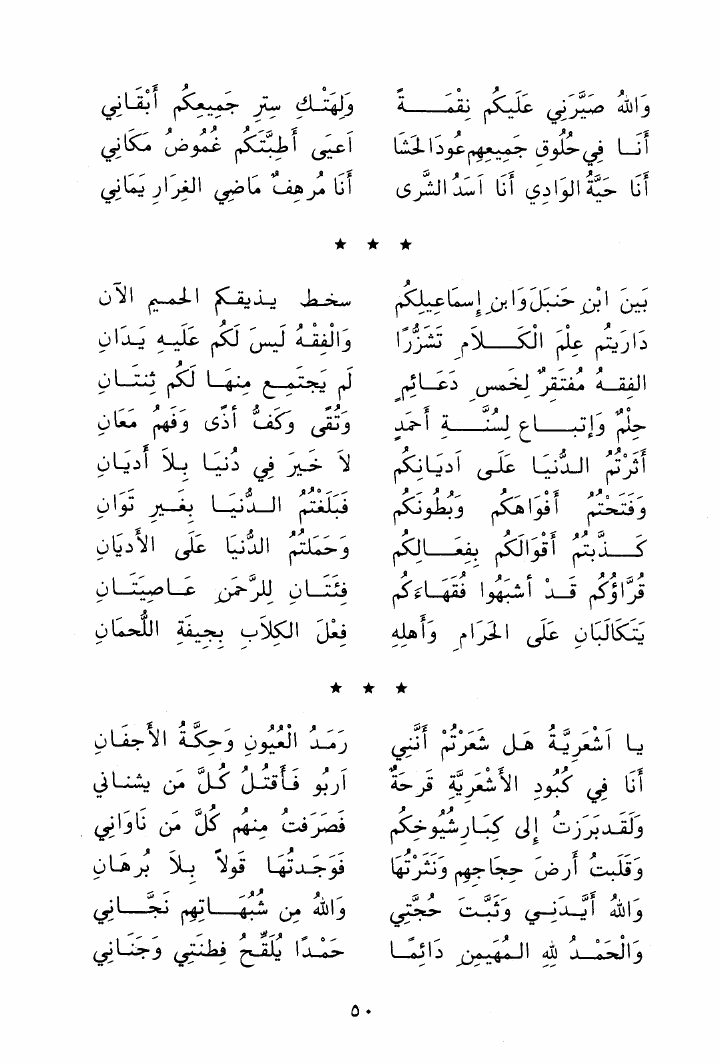 وَاللهُ صَيَّرَنِي عَلَيكُم نِقْمَةً وَلِهَتْكِ سِترِ جَمِيعِكُم أَبْقَانِي
أَنَا فِي حُلُوقِ جَمِيعِهِم عُودَ الحَشَا اَعيَى أَطِبَّتَكُم غُمُوضُ مَكَانِي
أَنَا حَيَّةُ الوَادِي أَنَا اَسَدُ الشَّرى أَنَا مُرهِفٌ مَاضِي الغِرَارِ يَمَانِي
★ ★ ★
بَينَ ابْنِ حَنبَلَ وَابنِ إسمَاعِيلِكُم سخط يذيقكم الحميم الآن
دَارَيتُم عِلْمَ الْكَلَامِ تَشَزُّرًا وَالْفِقْهُ لَيسَ لَكُم عَلَيهِ يَدَانِ
الفِقهُ مُفتَقِرٌ لِخَمسِ دَعَائِمٍ لَم يَجتَمِع مِنهَا لَكُم ثِنتَانِ
حِلْمٌ وَإتبَاع لِسُنَّةِ أَحمَدٍ وَتُقًى وَكَفُّ أذًى وَفَهمُ مَعَانِ
أَثَرْتُمُ الدُّنيَا عَلَى اَديَانِكُم لَا خَيرَ فِي دُنيَا بِلاَ أَديَانِ
وَفَتَحتُمُ أفوَاهَكُم وَبُطُونَكُم فَبَلَغْتُمُ الدُّنيَا بِغَيرِ تَوَانِ
كَذَّبتُمُ أقوَالَكُم بِفِعَالِكُم وَحَمَلتُمُ الدُّنيَا عَلَى الأديَانِ
قُرَّاؤُكُم قَد أشبَهُوا فُقَهَاءَكُم فِئَتَانِ لِلرَّحمَنِ عَاصِيَتَانِ
يَتكَالَبَانِ عَلَى الحَرَامِ وَأَهلِهِ فِعْلَ الكِلَابِ بِجِيفَةِ اللُّحمَانِ
★ ★ ★
يا اَشعَرِيَّةُ هَل شَعَرْتُمْ أَنَّنِي رَمَدُ الْعُيُونِ وَحِكَّةُ الأَجفَانِ
أَنَا فِي كُبُودِ الأشعَرِيَّةِ قَرحَةٌ اَربُو فَأَقتُلُ كُلَّ مَن يشنانِي
وَلَقَد بَرَزتُ إلى كِبَارِ شُيُوخِكُم فَصَرَفتُ مِنهُم كُلَّ مَن نَاوَانِي
وَقَلَبتُ أرضَ حِجَاجِهِم وَنَثَرْتُهَا فَوَجَدتُهَا قَولاً بِلاَ بُرهَانِ
وَاللهُ أَيَّدَنِي وَثَبَّتَ حُجَّتِي وَاللهُ مِن شُبُهَاتِهِم نَجَّانِي
وَالْحَمْدُ لِلهِ المُهَيمِنِ دَائِمًا حَمْدًا يُلَقِّحُ فِطنَتِي وَجَنَانِي
٥٠